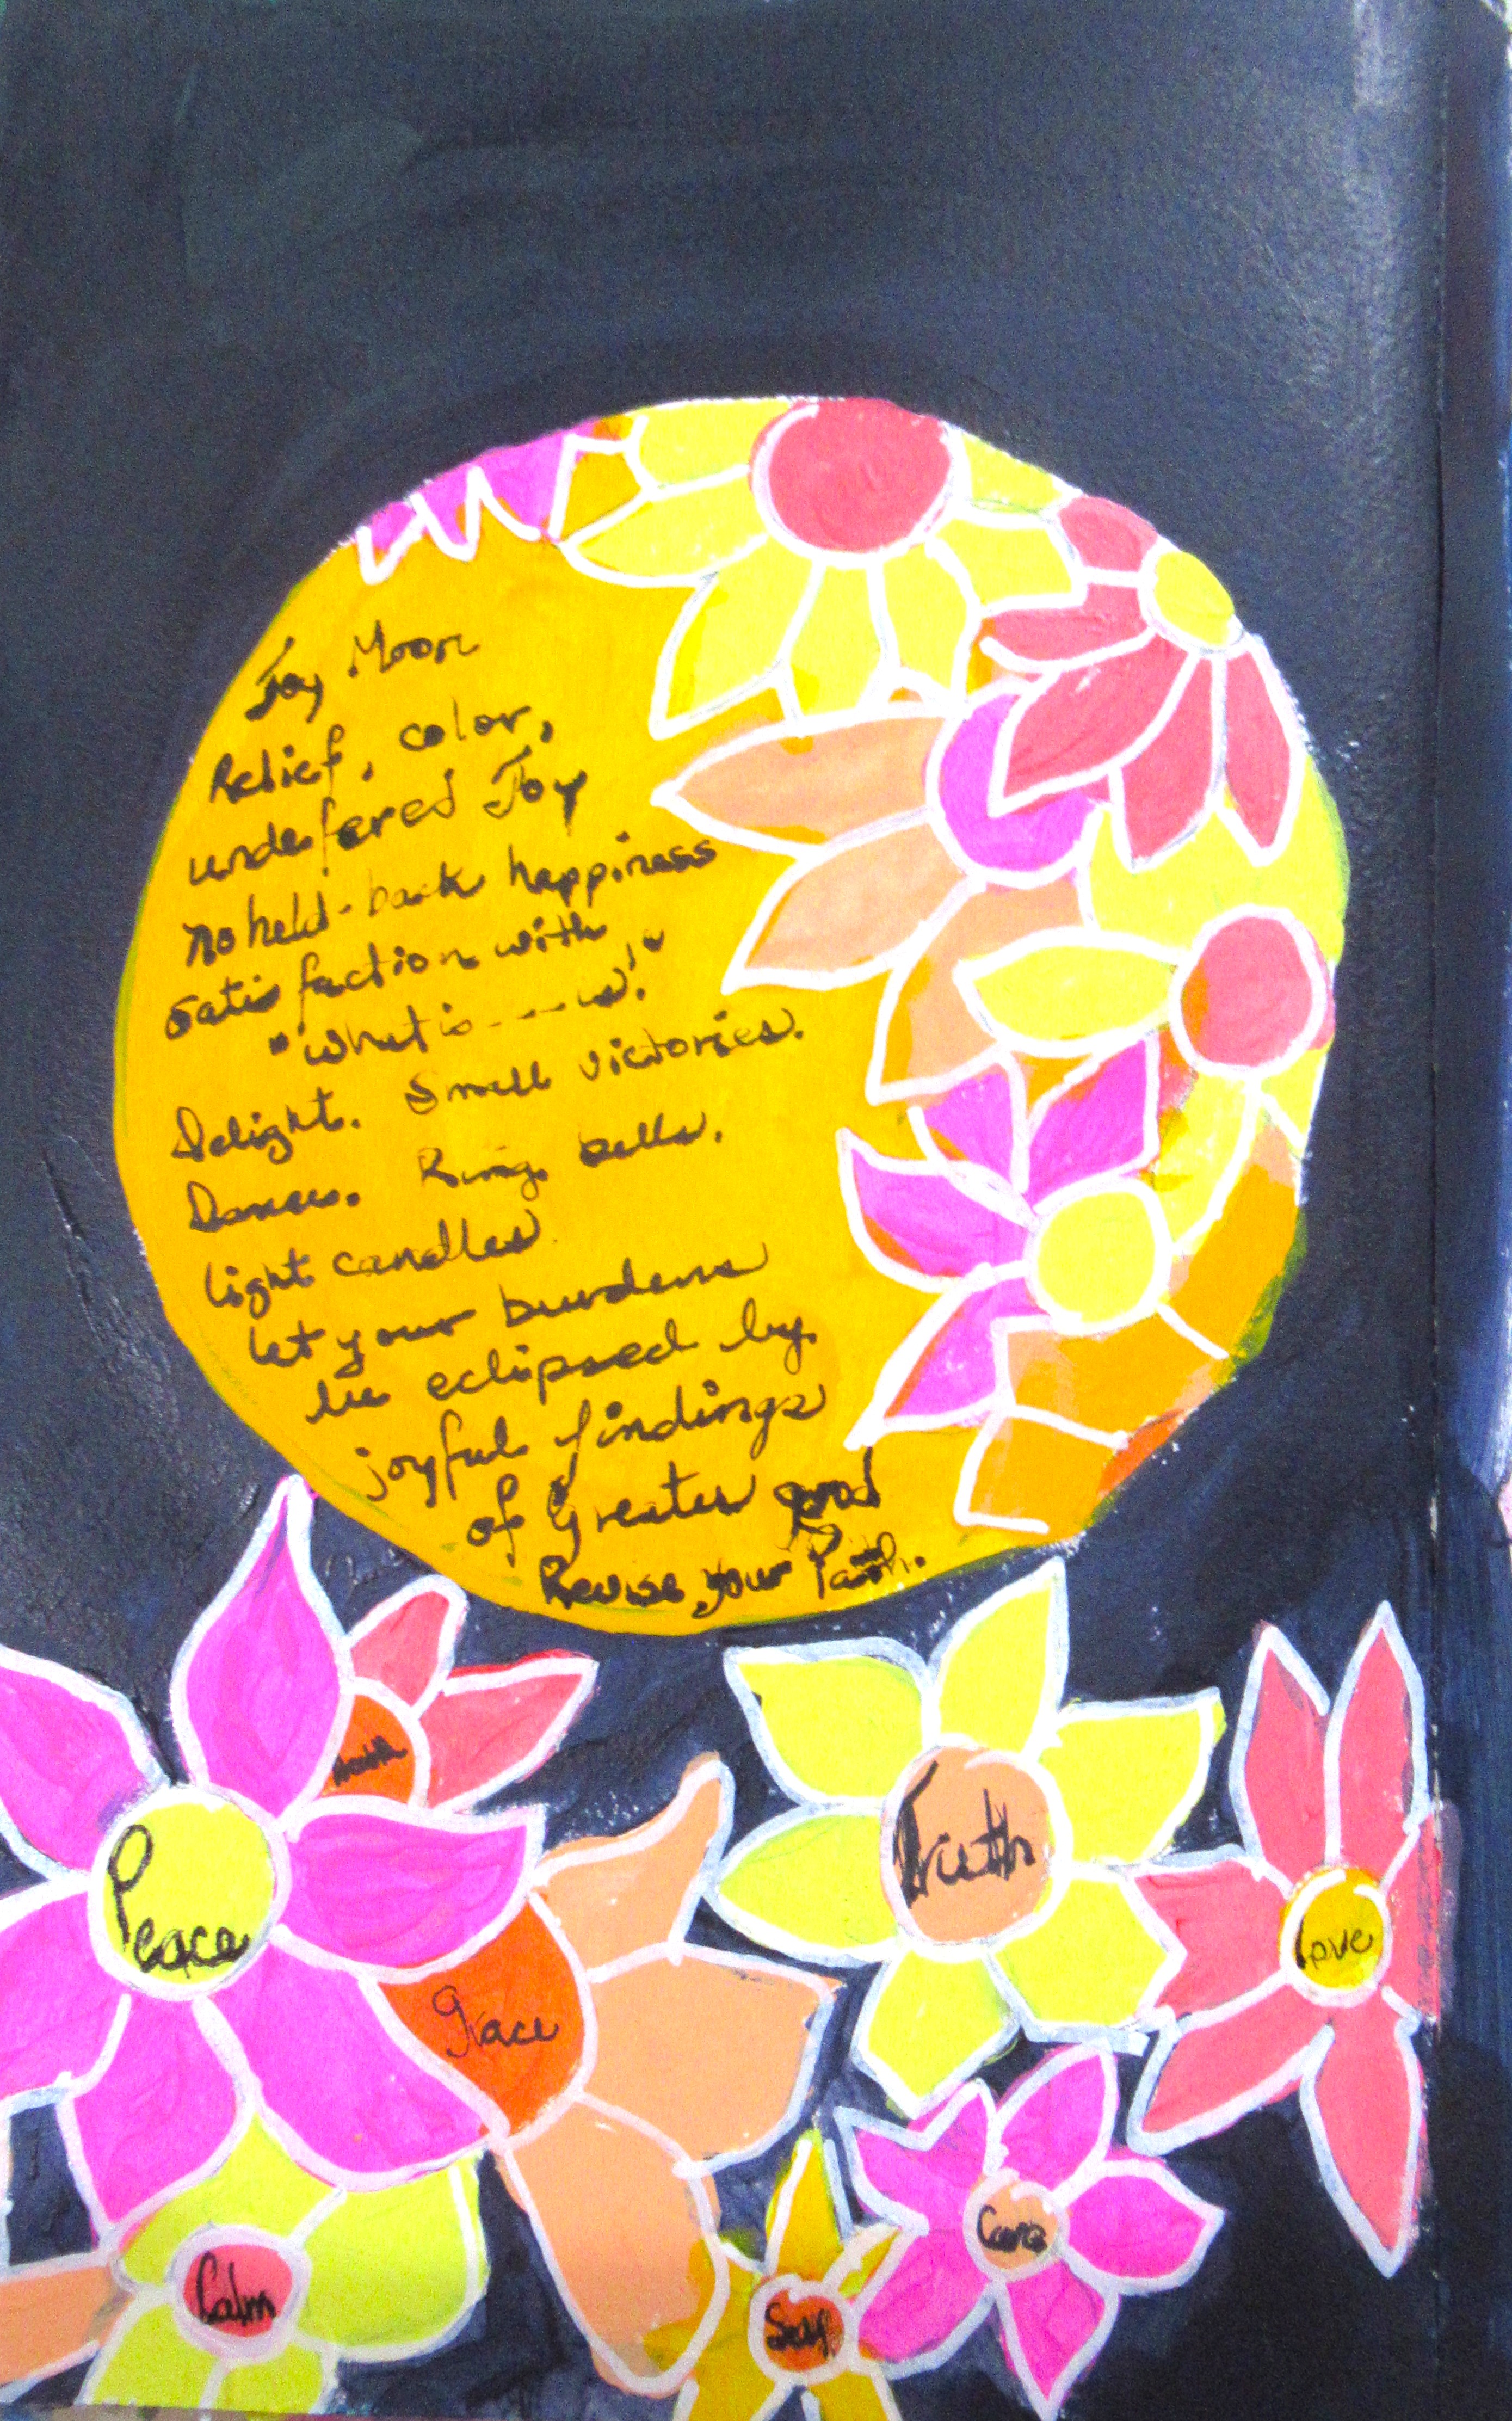 Joy Moon
Relief, color,
undefered Joy
No held-back happiness
satisfaction with
"what is---is."
Delight. Small victories.
Dance. Ring bells.
light candles
let your burdens
be eclipsed by
joyful findings
of Greater good
Revise your Path.
Peace
Truth
love
grace
Care
Calm
Self